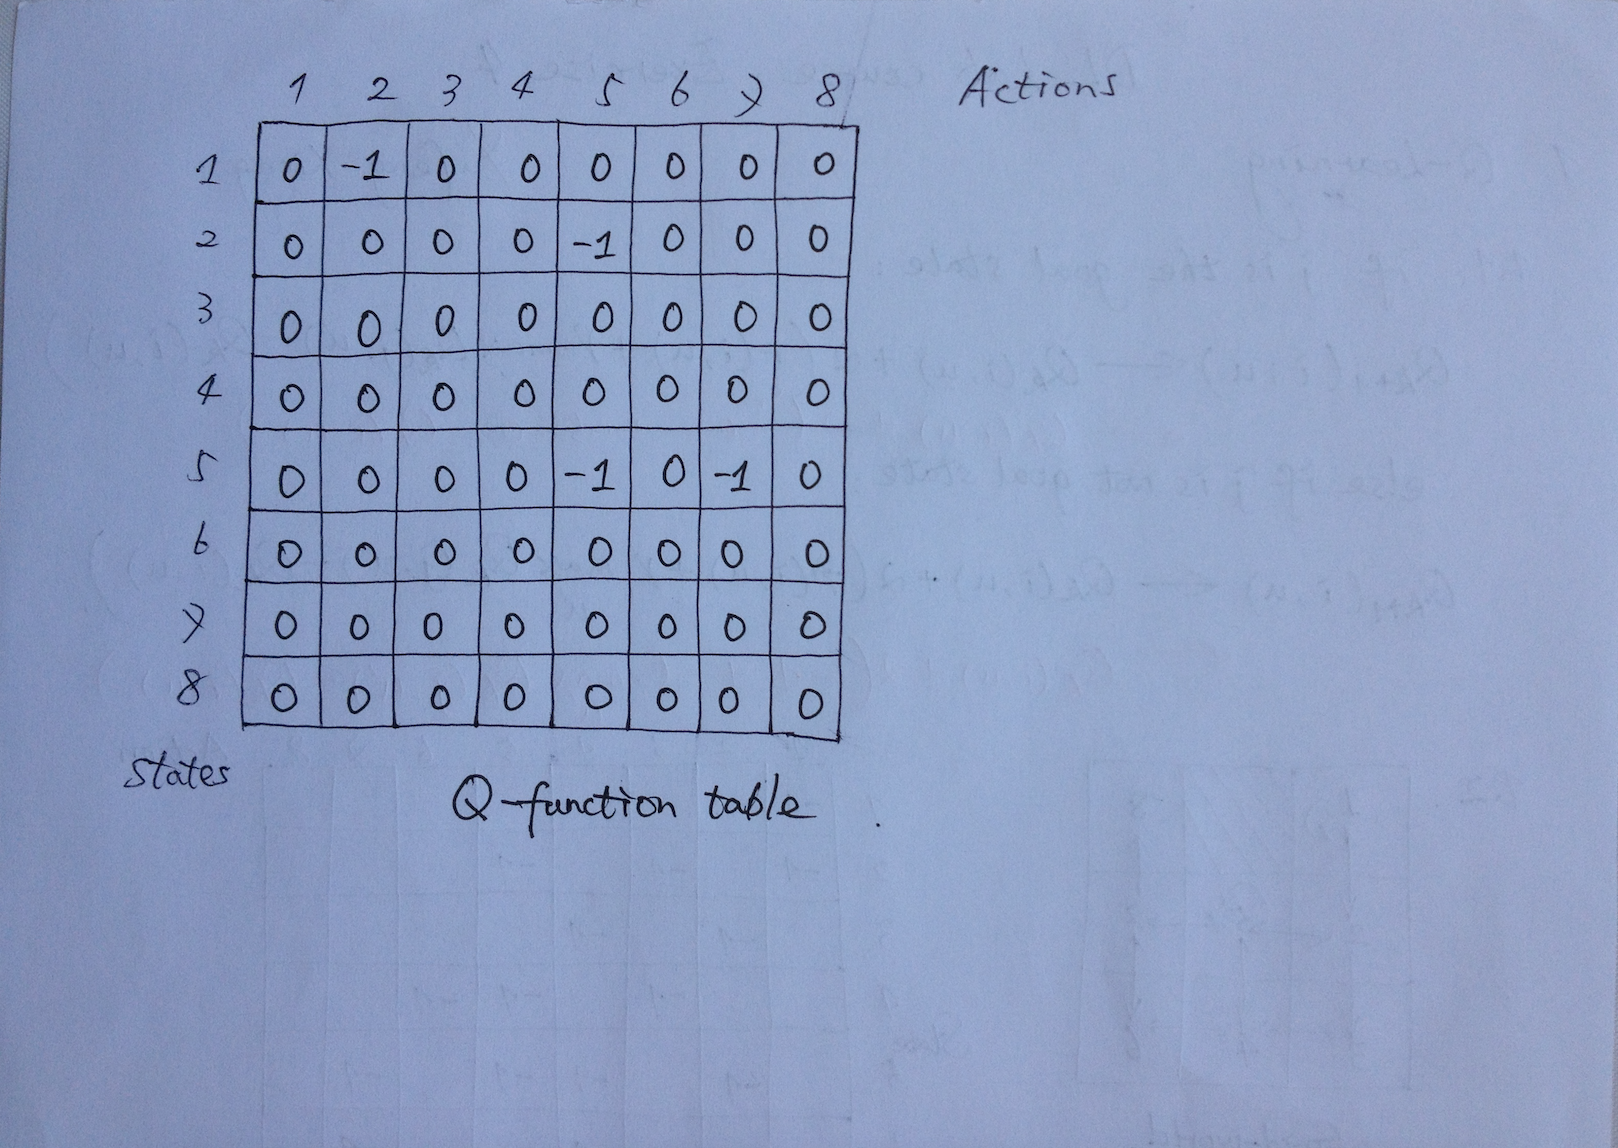 1 2 3 4 5 6 7 8 Actions
1 0 -1 0 0 0 0 0 0
2 0 0 0 0 -1 0 0 0
3 0 0 0 0 0 0 0 0
4 0 0 0 0 0 0 0 0
5 0 0 0 0 -1 0 -1 0
6 0 0 0 0 0 0 0 0
7 0 0 0 0 0 0 0 0
8 0 0 0 0 0 0 0 0
States
Q-function table .